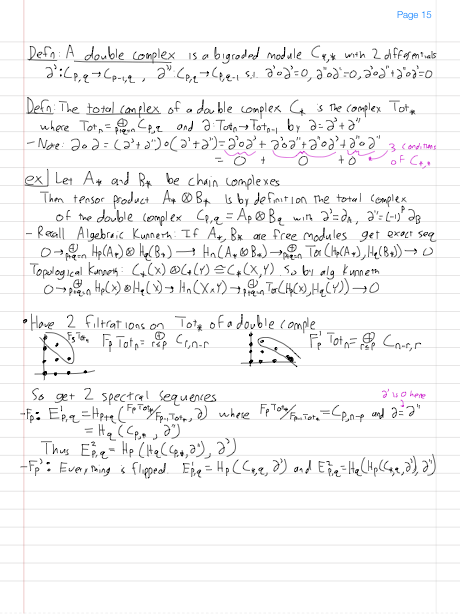 Page 15
Defn: A double complex is a bigraded module C*,* with 2 differentials
∂': Cp,q → Cp-1,q , ∂'': Cp,q → Cp,q-1 s.t. ∂'∘∂'=0, ∂''∘∂''=0, ∂'∘∂''+∂''∘∂'=0
Defn: The total complex of a double complex C* is the complex Tot*
where Totn = ⊕p+q=n Cp,q and ∂: Totn → Totn-1 by ∂=∂'+∂''
- Note: ∂∘∂ = (∂'+∂'')∘(∂'+∂'') = ∂'∘∂' + ∂'∘∂''+∂''∘∂' + ∂''∘∂''
= 0 + 0 + 0
3 conditions of C*,*
ex] Let A* and B* be chain complexes
Then tensor product A* ⊗ B* is by definition the total complex
of the double complex Cp,q = Ap ⊗ Bq with ∂'=∂A, ∂''=(-1)^p ∂B
- Recall Algebraic Kunneth: If A*, B* are free modules get exact seq
0 → ⊕p+q=n Hp(A*) ⊗ Hq(B*) → Hn(A* ⊗ B*) → ⊕ Tor(Hp(A*), Hq(B*)) → 0
Topological Kunneth: C*(X) ⊗ C*(Y) ≅ C*(X,Y). So by alg Kunneth
0 → ⊕p+q=n Hp(X) ⊗ Hq(Y) → Hn(X×Y) → ⊕ Tor(Hp(X), Hq(Y)) → 0
• Have 2 filtrations on Tot* of a double comple
Fp Totn Fp Totn = ⊕r≤p Cr,n-r Fp' Totn = ⊕r≤p Cn-r,r
So get 2 spectral sequences
∂' is 0 here
- Fp: E¹p,q = Hp+q(Fp Tot*/Fp-1 Tot*, ∂) where Fp Tot*/Fp-1 Tot* = Cp,n-p and ∂=∂''
= Hq(Cp,*, ∂'')
Thus E²p,q = Hp(Hq(Cp,*, ∂''), ∂')
- Fp': Everything is flipped. E¹p,q = Hp(C*,q, ∂') and E²p,q = Hq(Hp(C*,q, ∂'), ∂'')